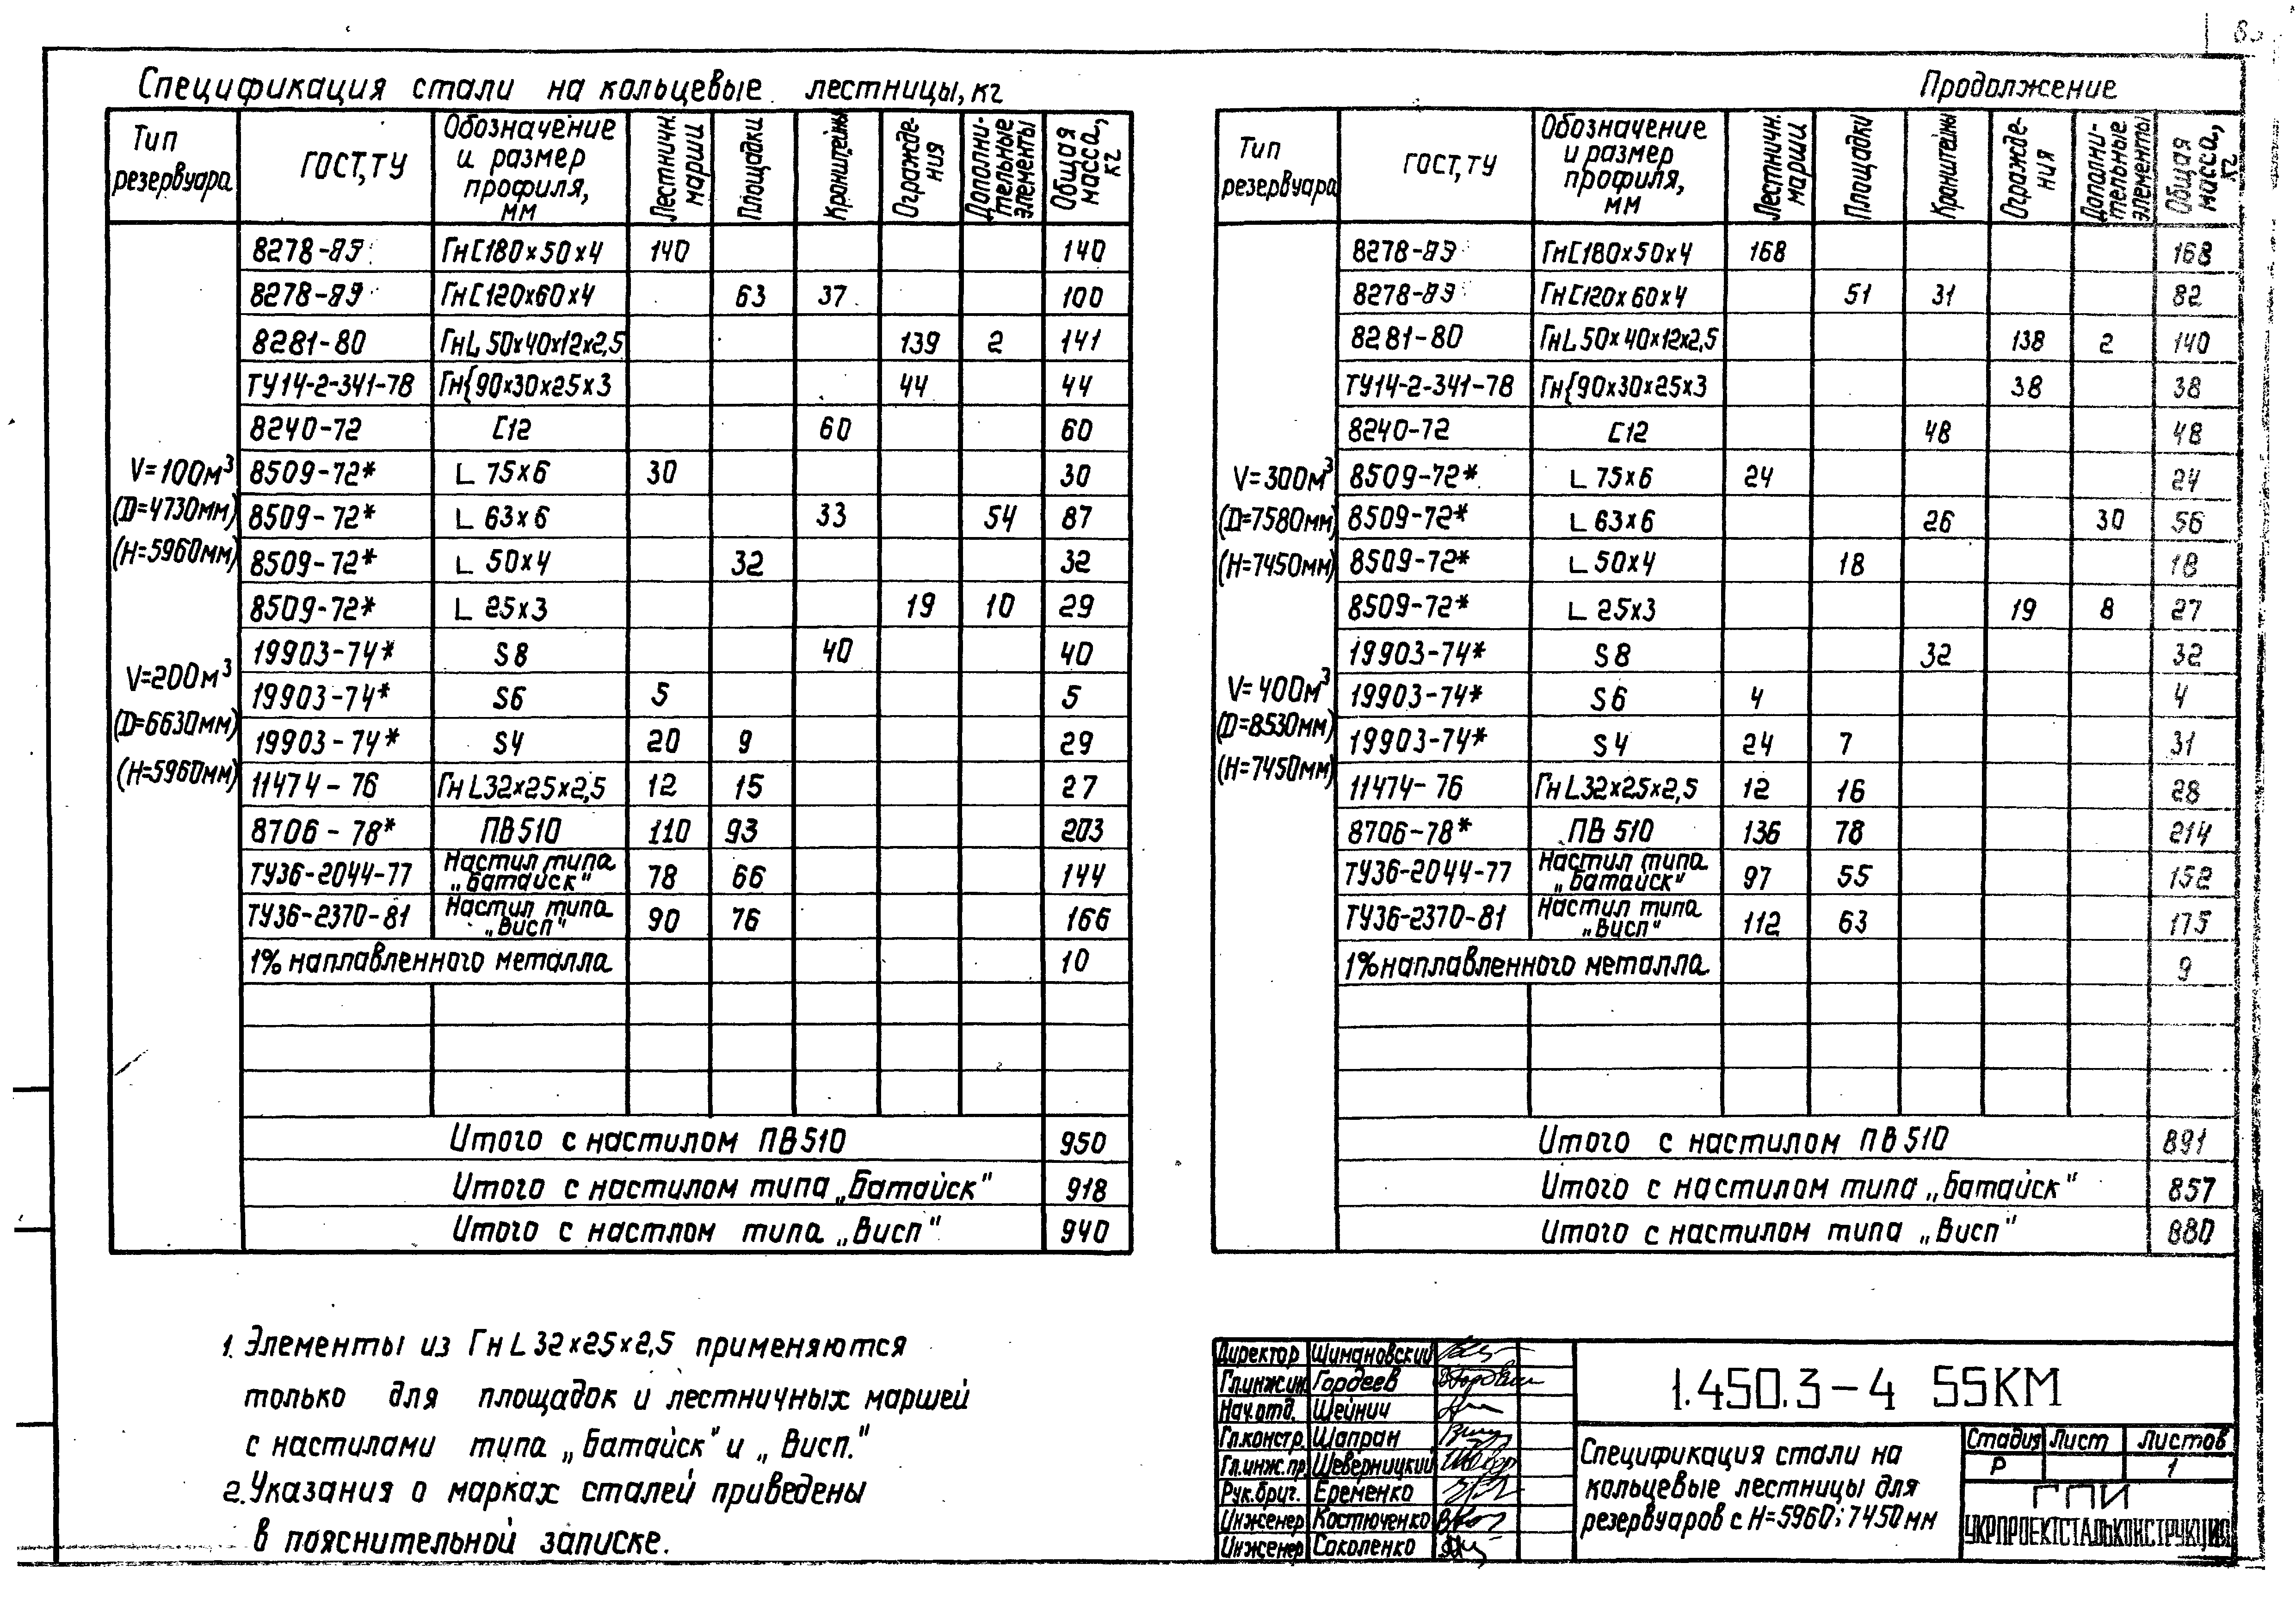 Спецификация стали на кольцевые лестницы, кг
Тип резервуара | ГОСТ, ТУ | Обозначение и размер профиля, мм | Лестничн. марши | Площадки | Кронштейны | Огражде-ния | Дополни-тельные элементы | Общая масса, кг
V=100м³
(D=4730мм)
(H=5960мм)
V=200м³
(D=6630мм)
(H=5960мм)
8278-83 ГнС180×50×4 140 140
8278-83 ГнС120×60×4 63 37 100
8281-80 ГнL 50×40×12×2,5 139 2 141
ТУ14-2-341-78 Гн{90×30×25×3 44 44
8240-72 С12 60 60
8509-72* L 75×6 30 30
8509-72* L 63×6 33 54 87
8509-72* L 50×4 32 32
8509-72* L 25×3 19 10 29
19903-74* S8 40 40
19903-74* S6 5 5
19903-74* S4 20 9 29
11474-76 ГнL32×25×2,5 12 15 27
8706-78* ПВ510 110 93 203
ТУ36-2044-77 Настил типа „Батайск" 78 66 144
ТУ36-2370-81 Настил типа „Висп" 90 76 166
1% наплавленного металла 10
Итого с настилом ПВ510 950
Итого с настилом типа „Батайск" 918
Итого с настлом типа „Висп" 940
Продолжение
Тип резервуара | ГОСТ, ТУ | Обозначение и размер профиля, мм | Лестничн. марши | Площадки | Кронштейны | Огражде-ния | Дополни-тельные элементы | Общая масса, кг
V=300м³
(D=7580мм)
(H=7450мм)
V=400м³
(D=8530мм)
(H=7450мм)
8278-83 ГнС180×50×4 168 168
8278-83 ГнС120×60×4 51 31 82
8281-80 ГнL50×40×12×2,5 138 2 140
ТУ14-2-341-78 Гн{90×30×25×3 38 38
8240-72 С12 48 48
8509-72* L 75×6 24 24
8509-72* L 63×6 26 30 56
8509-72* L 50×4 18 18
8509-72* L 25×3 19 8 27
19903-74* S8 32 32
19903-74* S6 4 4
19903-74* S4 24 7 31
11474-76 ГнL32×25×2,5 12 16 28
8706-78* ПВ510 136 78 214
ТУ36-2044-77 Настил типа „Батайск" 97 55 152
ТУ36-2370-81 Настил типа „Висп" 112 63 175
1% наплавленного металла 9
Итого с настилом ПВ510 891
Итого с настилом типа „Батайск" 857
Итого с настилом типа „Висп" 880
1. Элементы из ГнL 32×25×2,5 применяются
только для площадок и лестничных маршей
с настилами типа „Батайск" и „Висп."
2. Указания о марках сталей приведены
в пояснительной записке.
Директор Шимановский
Гл.инж.ин. Гордеев
Нач.отд. Шейнич
Гл.констр. Шапран
Гл.инж.пр. Шеверницкий
Рук.бриг. Еременко
Инженер Костюченко
Инженер Соколенко
1.450.3-4 55КМ
Спецификация стали на
кольцевые лестницы для
резервуаров с H=5960; 7450мм
Стадия Лист Листов
Р 1
ГПИ
УКРПРОЕКТСТАЛЬКОНСТРУКЦИЯ